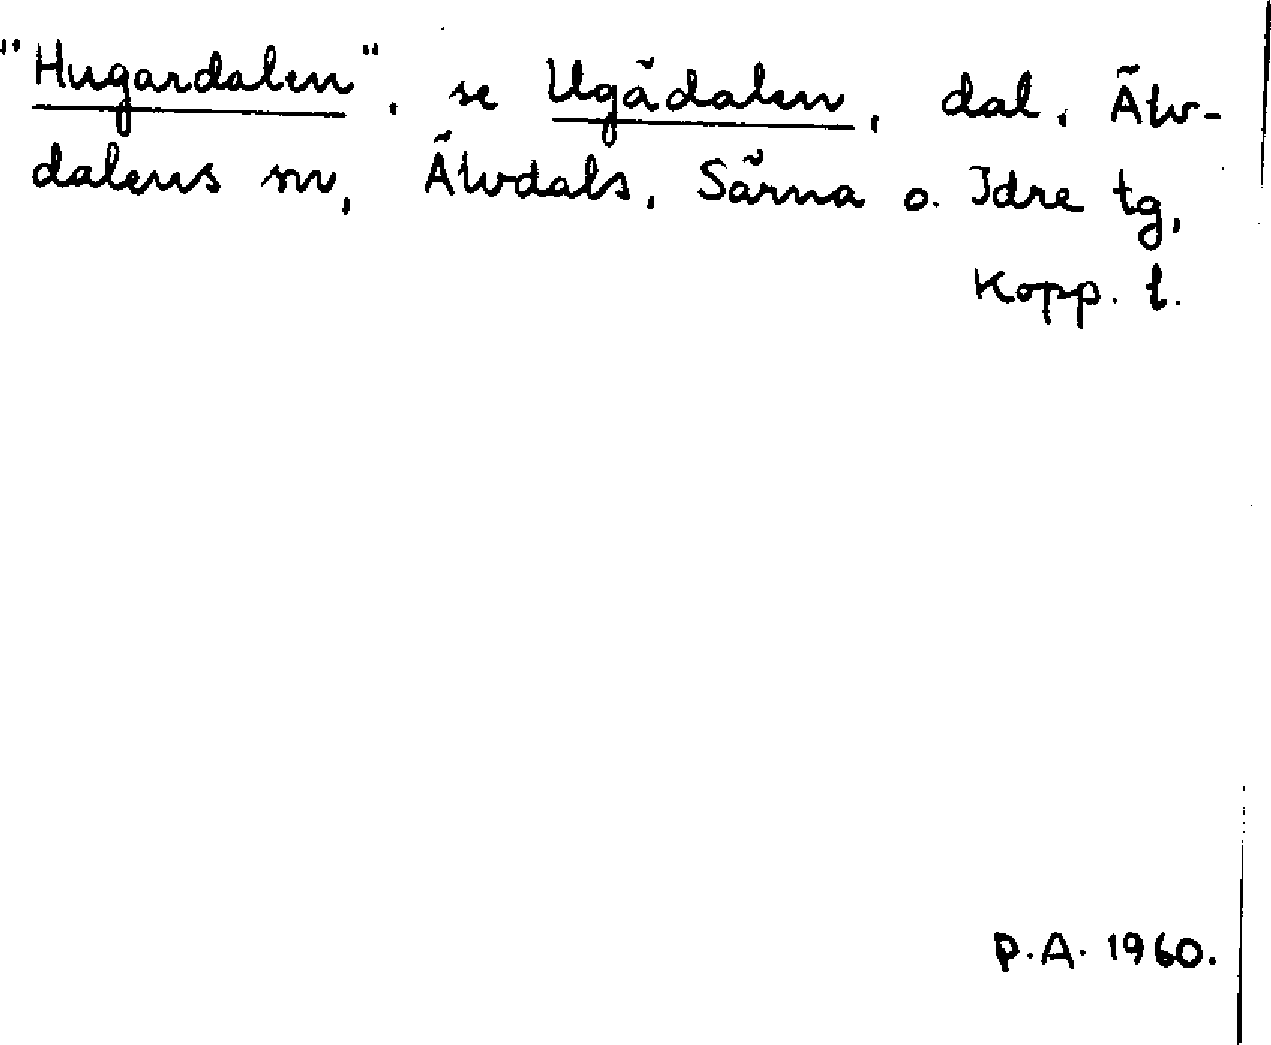 "Hugardalen", se Ugãdalen, dal, Älv-
dalens sn, Älvdals, Särna o. Idre tg,
Kopp. l.
P.A. 1960.